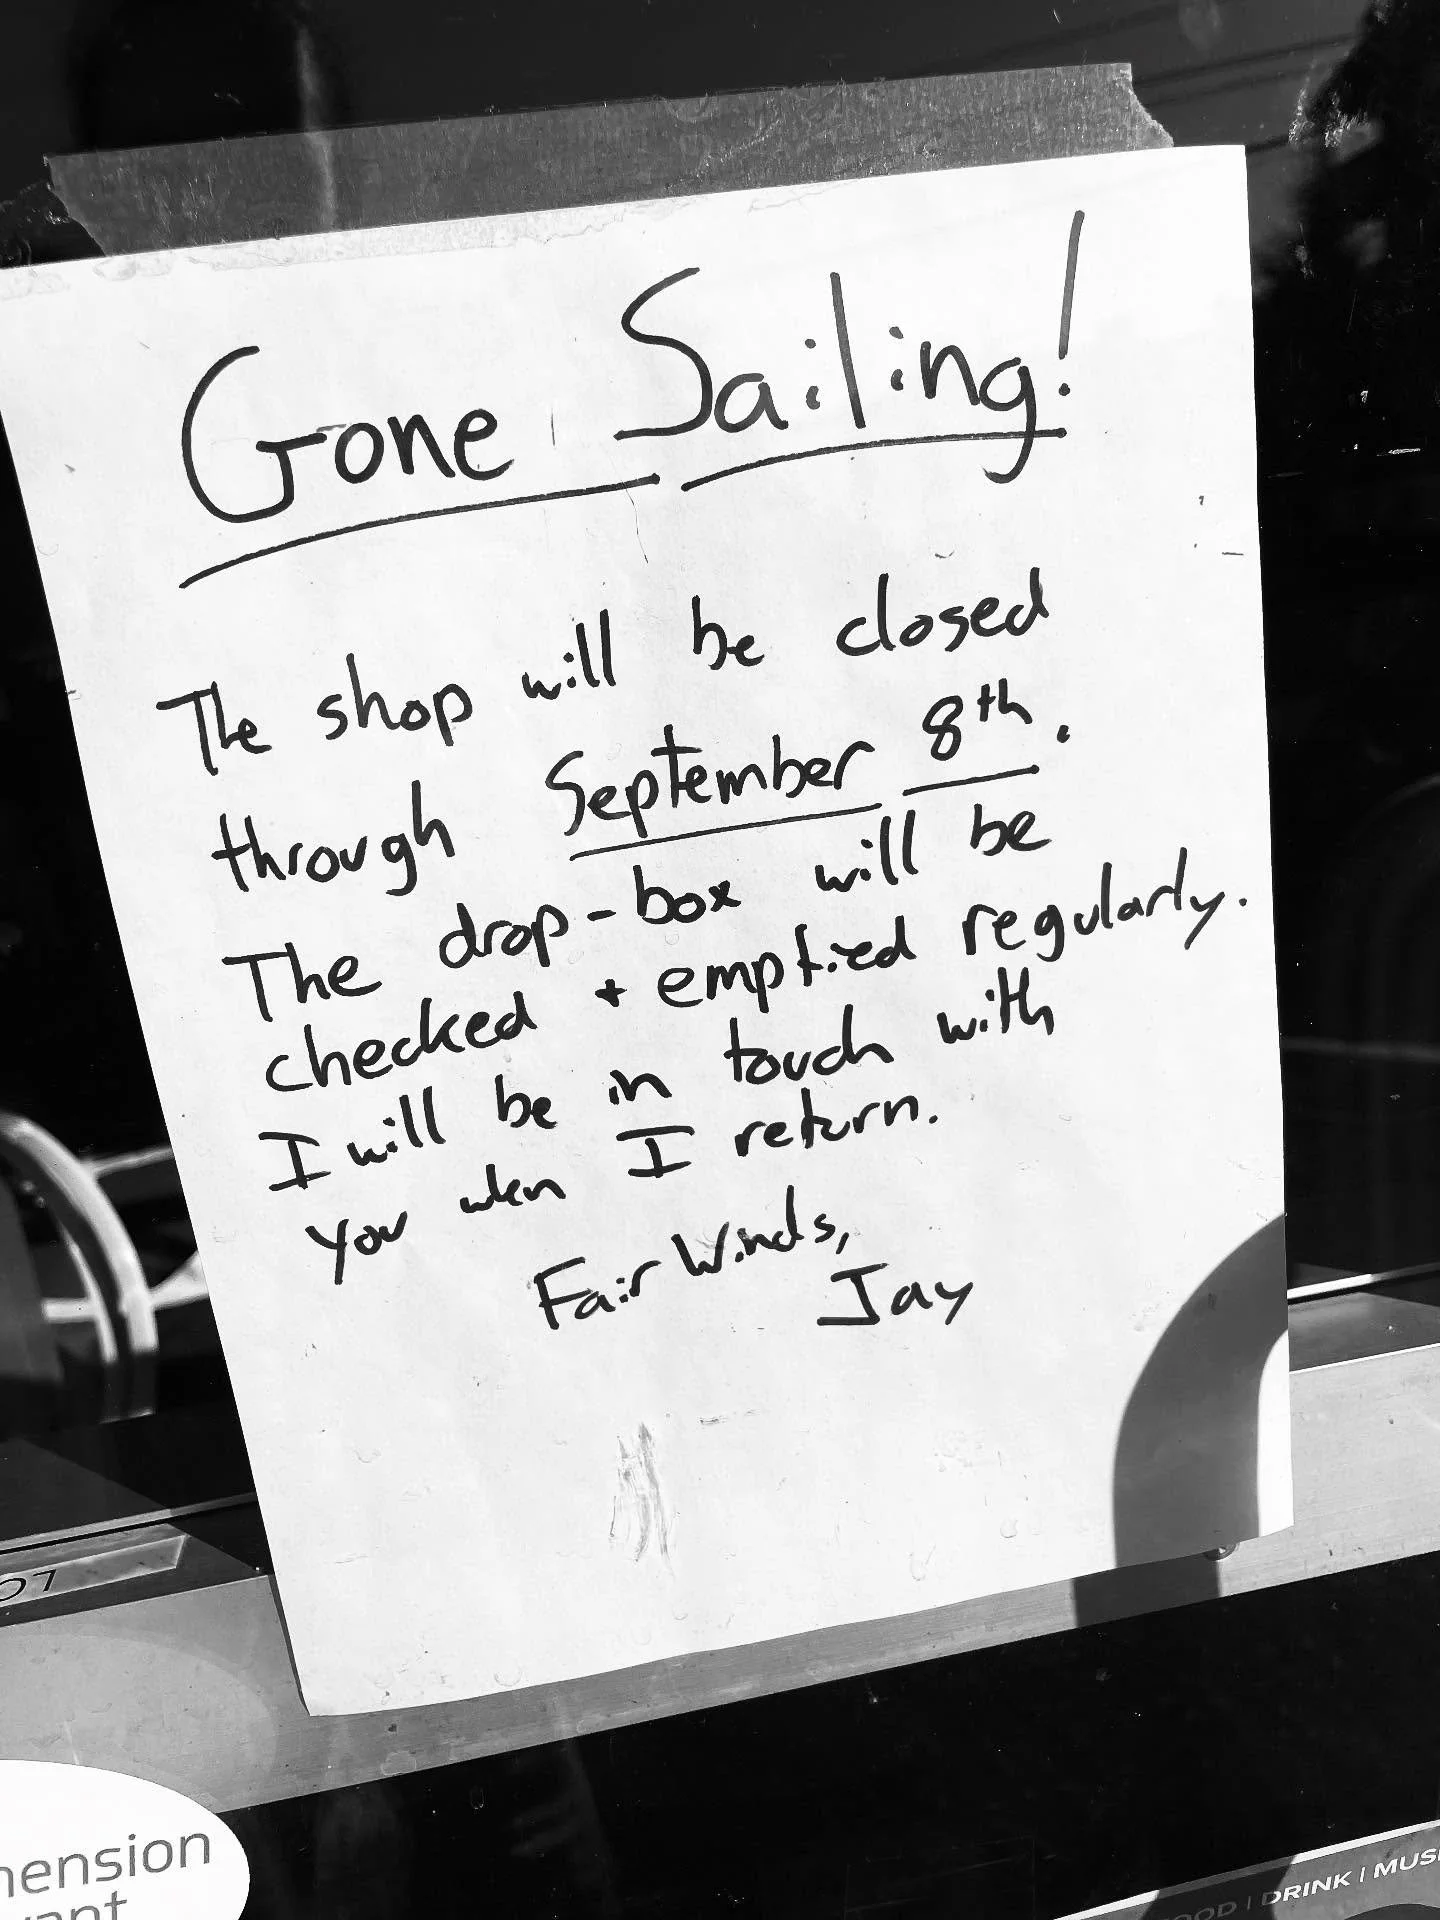 Gone Sailing!
The shop will be closed
through September 8th.
The drop-box will be
checked + emptied regularly.
I will be in touch with
you when I return.
Fair Winds,
Jay
DRINK | MUS